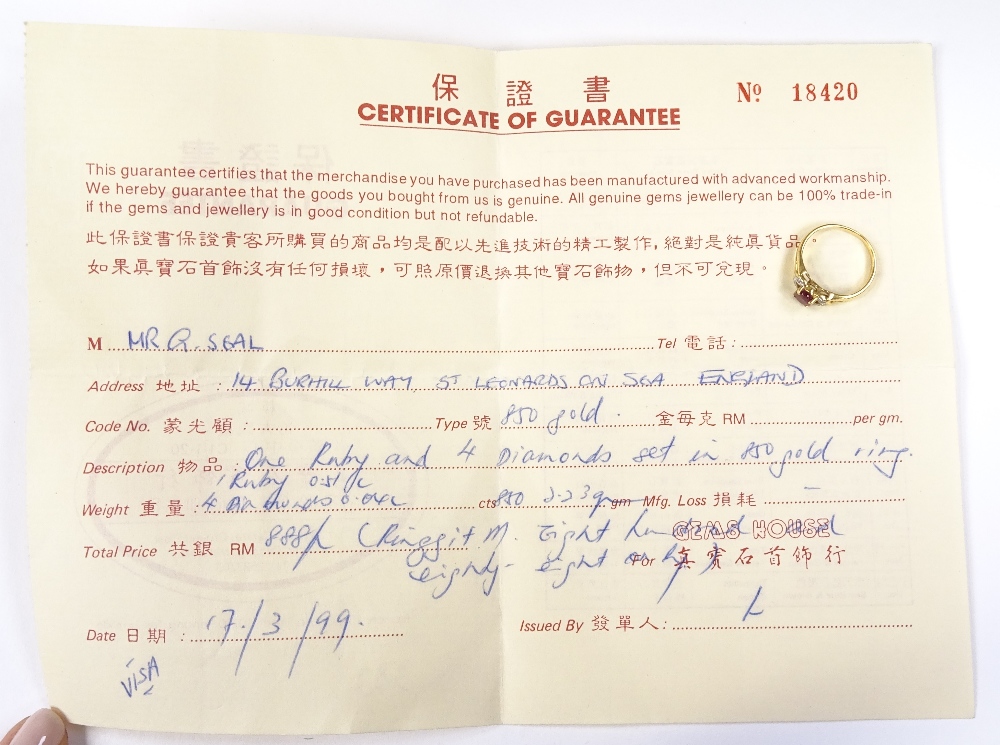 保 證 書
CERTIFICATE OF GUARANTEE
Nº 18420
This guarantee certifies that the merchandise you have purchased has been manufactured with advanced workmanship.
We hereby guarantee that the goods you bought from us is genuine. All genuine gems jewellery can be 100% trade-in
if the gems and jewellery is in good condition but not refundable.
此保證書保證貴客所購買的商品均是配以先進技術的精工製作,絕對是純真貨品。
如果眞寶石首飾沒有任何損壞,可照原價退換其他寶石飾物,但不可兌現。
M MR Q. SEAL Tel 電話:
Address 地址 : 14 BURHILL WAY, ST LEONARDS ON SEA ENGLAND
Code No. 蒙光顧 : Type 號 850 gold. 金每克 RM per gm.
Description 物品 : One Ruby and 4 Diamonds set in 850 gold ring.
1 Ruby 0.51c
Weight 重量 : 4 Diamonds 0.04c cts 850 2.23g gm Mfg. Loss 損耗 –
Total Price 共銀 RM 888/- (Ringgit M. Eight hundred and
GEMS HOUSE
eighty-eight only)
For 真寶石首飾行
Date 日期 : 17/3/99. Issued By 發單人:
VISA